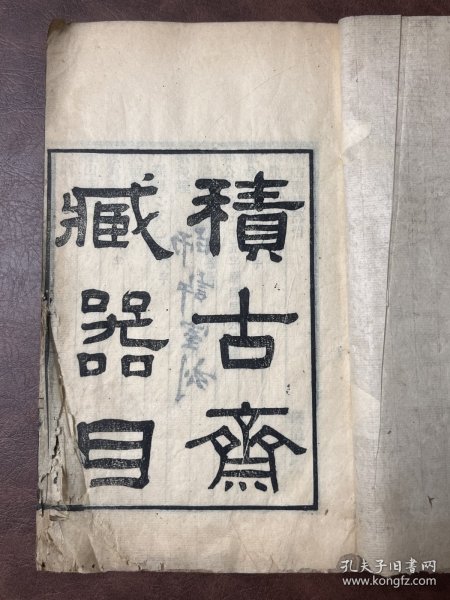 積古齋
藏器目
孔夫子旧书网
www.kongfz.com